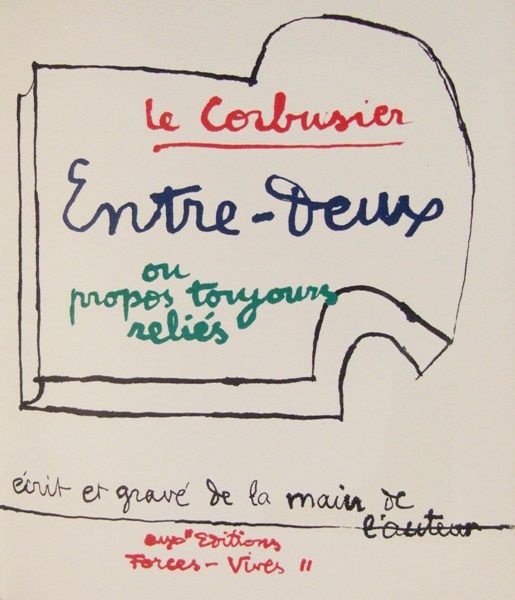 le Corbusier
Entre-Deux
ou
propos toujours
reliés
écrit et gravé de la main de
l'auteur
aux "Editions
Forces-Vives "